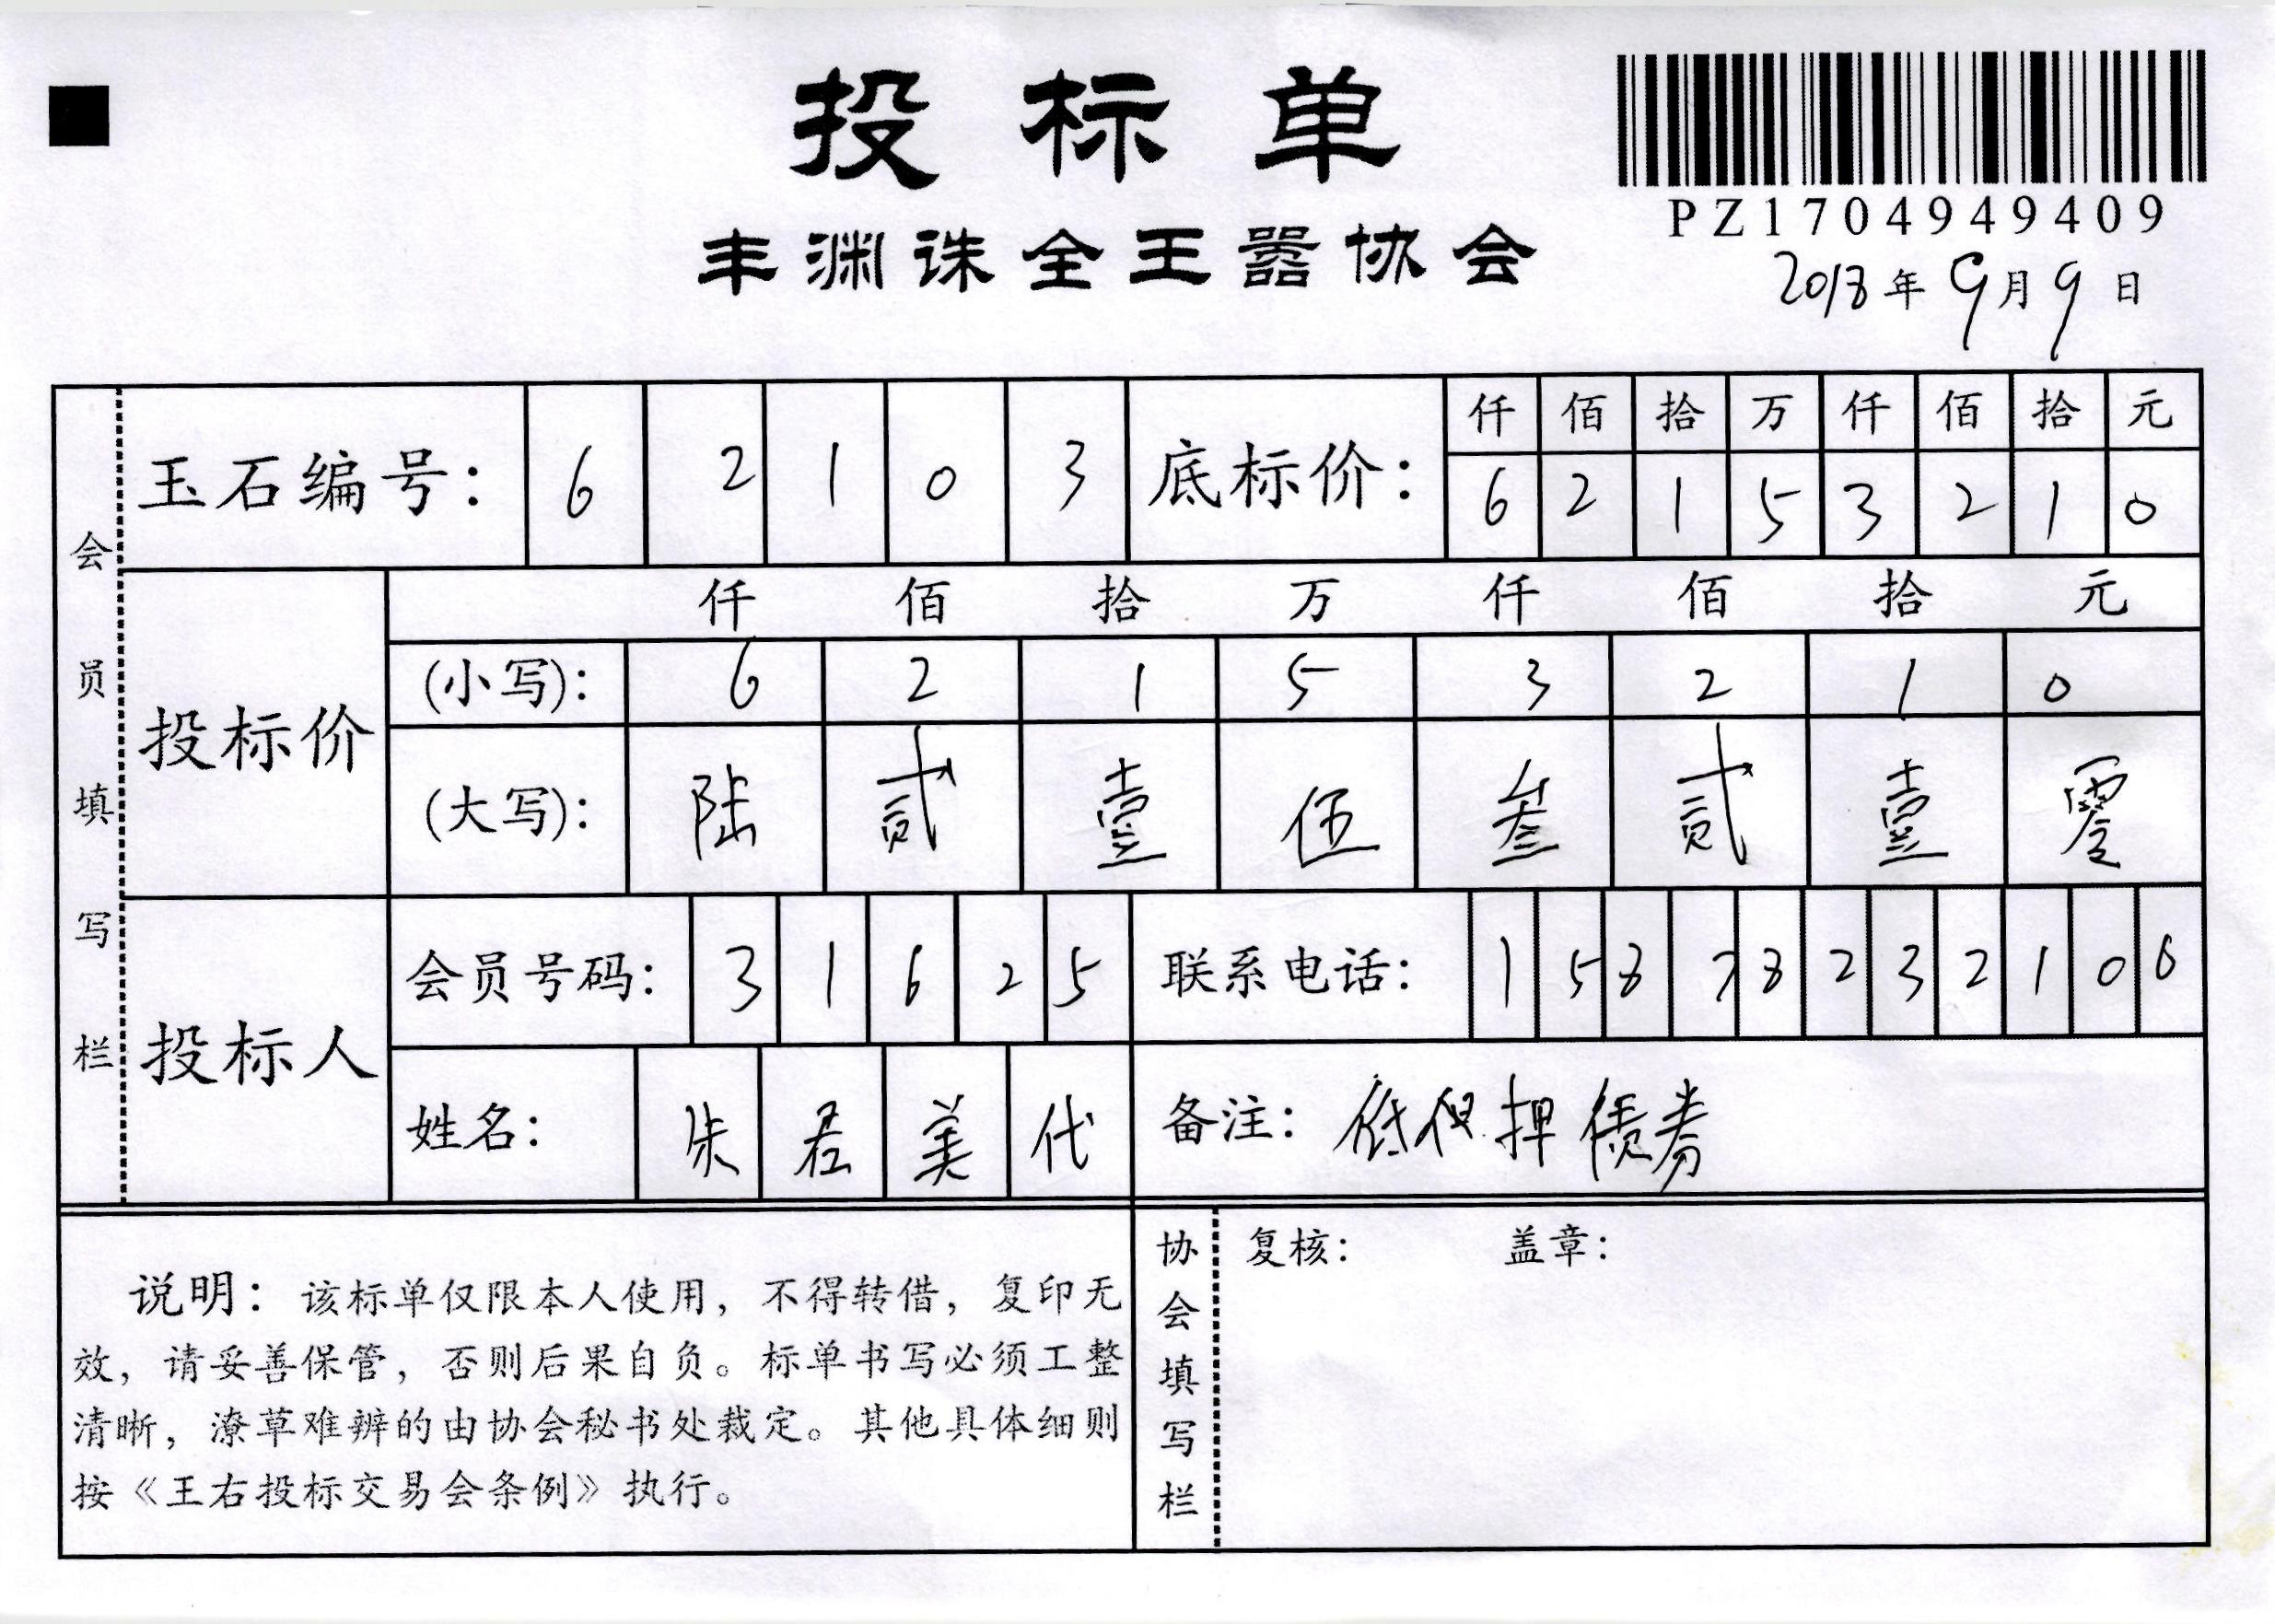 投标单
PZ1704949409
丰渊诛全王嚣协会
2018年9月9日
会员填写栏
玉石编号: 6 2 1 0 3
底标价: 仟 佰 拾 万 仟 佰 拾 元
6 2 1 5 3 2 1 0
投标价
仟 佰 拾 万 仟 佰 拾 元
(小写): 6 2 1 5 3 2 1 0
(大写): 陆 贰 壹 伍 叁 贰 壹 零
投标人
会员号码: 3 1 6 2 5
联系电话: 1 5 8 7 8 2 3 2 1 0
姓名: 朱 君 美 代
备注: 押债券
说明: 该标单仅限本人使用, 不得转借, 复印无
效, 请妥善保管, 否则后果自负。标单书写必须工整
清晰, 潦草难辨的由协会秘书处裁定。其他具体细则
按《王右投标交易会条例》执行。
协会填写栏
复核: 盖章: